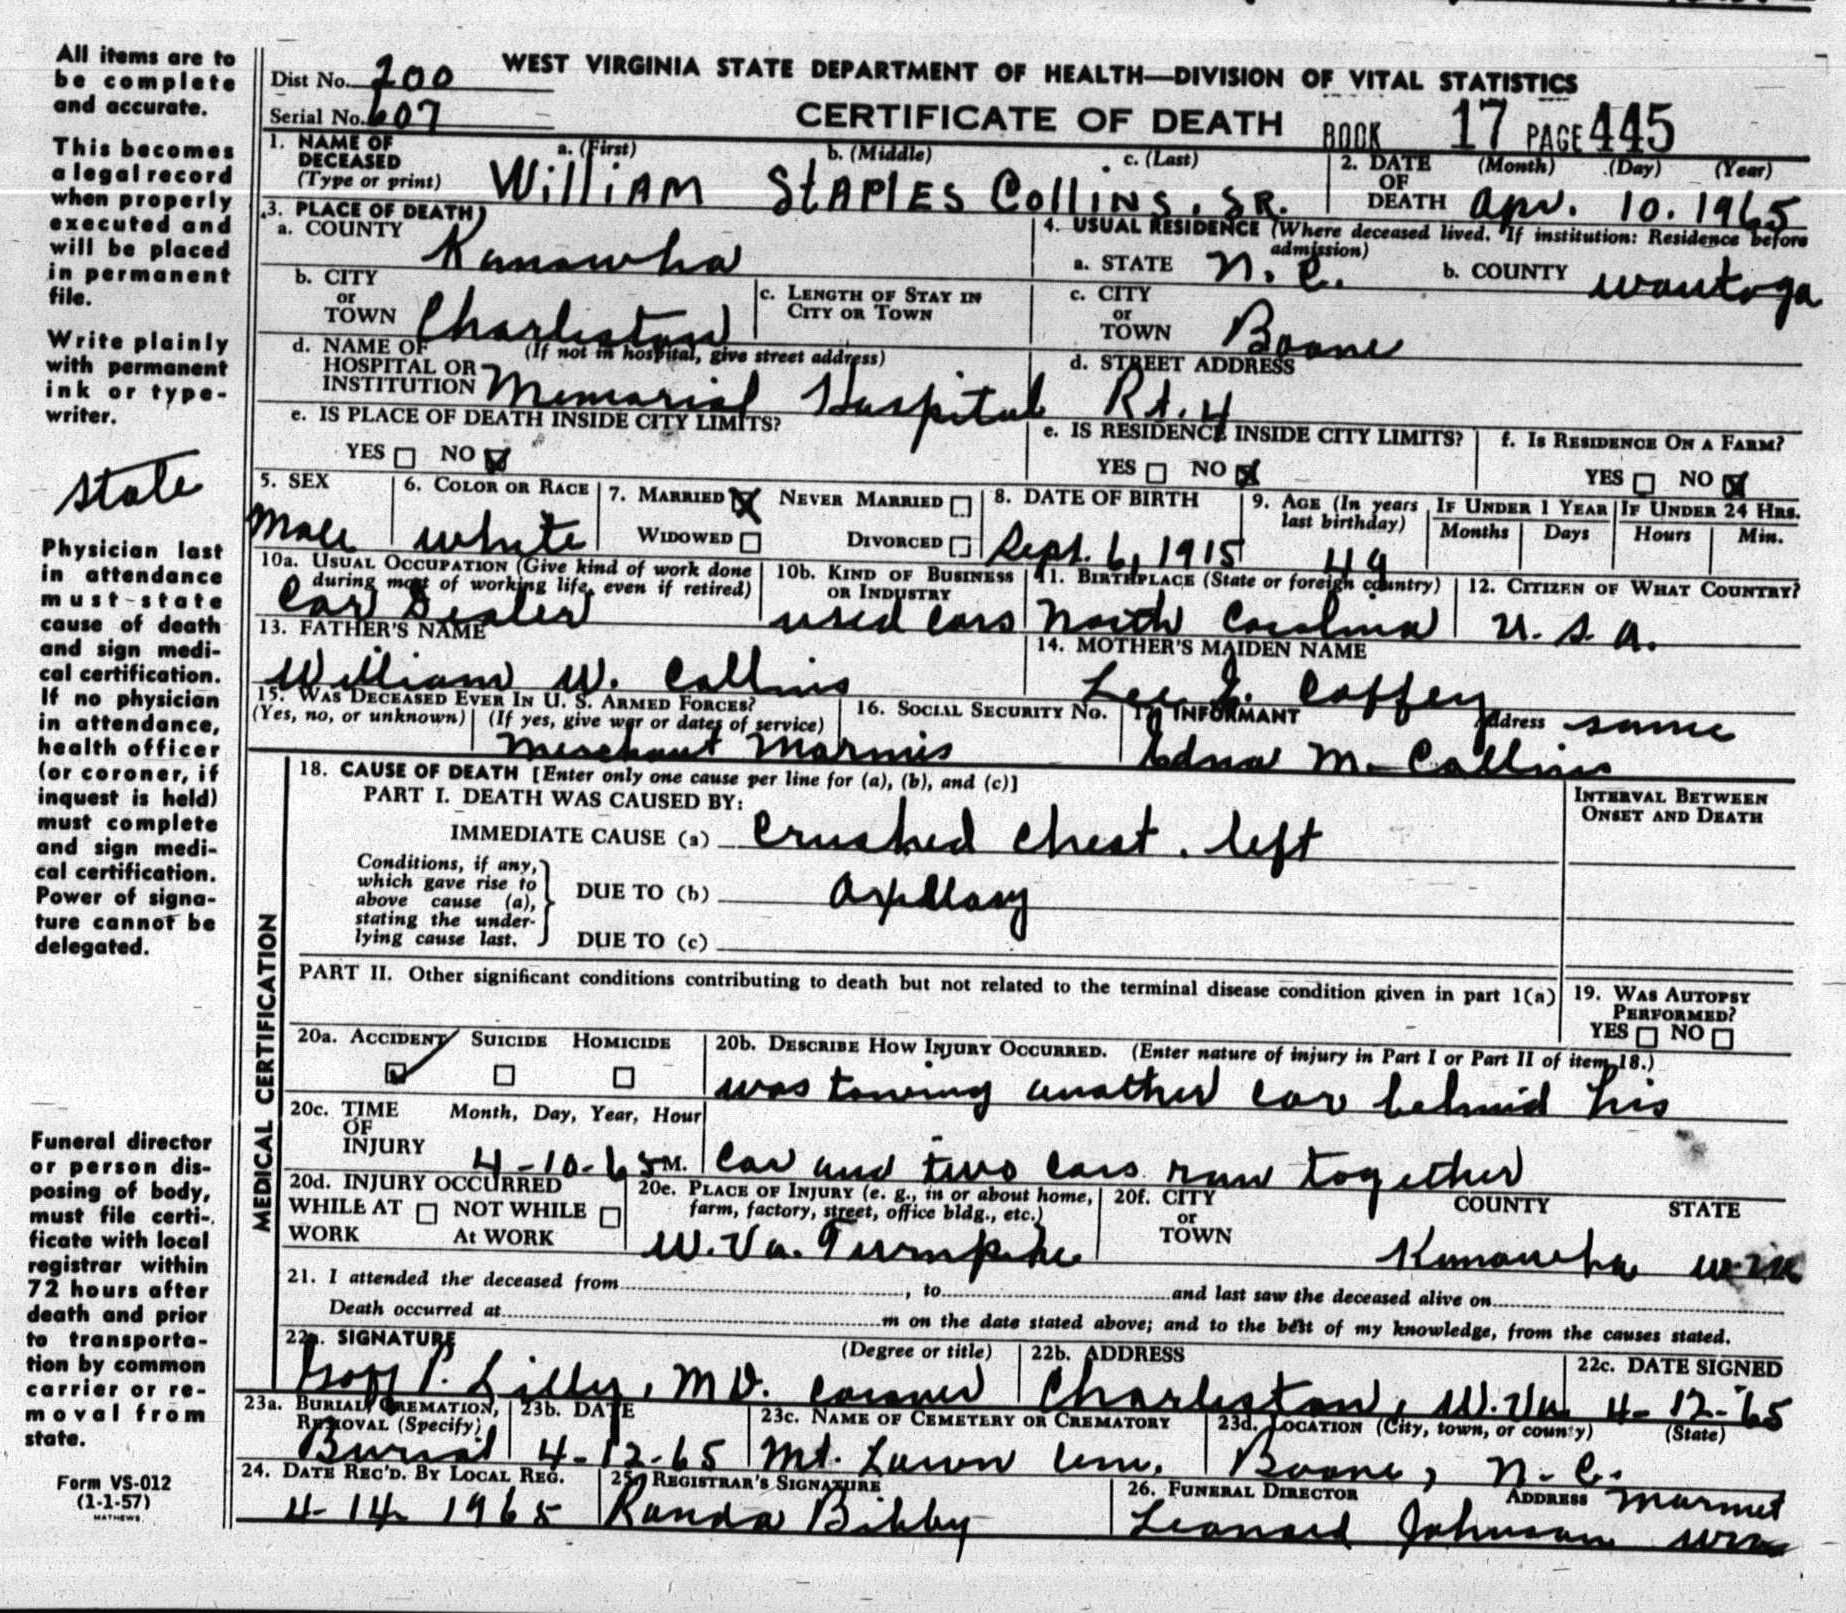 All items are to be complete and accurate.
This becomes a legal record when properly executed and will be placed in permanent file.
Write plainly with permanent ink or type-writer.
state
Physician last in attendance must state cause of death and sign medi-cal certification. If no physician in attendance, health officer (or coroner, if inquest is held) must complete and sign medi-cal certification. Power of signa-ture cannot be delegated.
Funeral director or person dis-posing of body, must file certi-ficate with local registrar within 72 hours after death and prior to transporta-tion by common carrier or re-moval from state.
Form VS-012
(1-1-57)
MATHEWS
Dist No. 200
Serial No. 607
WEST VIRGINIA STATE DEPARTMENT OF HEALTH—DIVISION OF VITAL STATISTICS
CERTIFICATE OF DEATH BOOK 17 PAGE 445
1. NAME OF DECEASED (Type or print) a. (First) b. (Middle) c. (Last)
WilliAM STAPLES Collins, SR.
2. DATE OF DEATH (Month) (Day) (Year)
Apr. 10. 1965
3. PLACE OF DEATH
a. COUNTY Kanawha
4. USUAL RESIDENCE (Where deceased lived. If institution: Residence before admission)
a. STATE N.C. b. COUNTY Wautoga
b. CITY or TOWN Charleston
c. LENGTH OF STAY IN CITY OR TOWN
c. CITY or TOWN Boone
d. NAME OF HOSPITAL OR INSTITUTION (If not in hospital, give street address)
Memorial Hospital
d. STREET ADDRESS
Rt. 4
e. IS PLACE OF DEATH INSIDE CITY LIMITS?
YES NO
e. IS RESIDENCE INSIDE CITY LIMITS?
YES NO
f. IS RESIDENCE ON A FARM?
YES NO
5. SEX
Male
6. COLOR OR RACE
white
7. MARRIED NEVER MARRIED
WIDOWED DIVORCED
8. DATE OF BIRTH
Sept. 6, 1915
9. AGE (In years last birthday)
49
IF UNDER 1 YEAR
Months Days
IF UNDER 24 HRS.
Hours Min.
10a. USUAL OCCUPATION (Give kind of work done during most of working life, even if retired)
Car Dealer
10b. KIND OF BUSINESS OR INDUSTRY
used cars
11. BIRTHPLACE (State or foreign country)
North Carolina
12. CITIZEN OF WHAT COUNTRY?
U.S.A.
13. FATHER'S NAME
William W. Collins
14. MOTHER'S MAIDEN NAME
Lee J. Coffey
15. WAS DECEASED EVER IN U. S. ARMED FORCES?
(Yes, no, or unknown) (If yes, give war or dates of service)
Merchant Marines
16. SOCIAL SECURITY NO.
17. INFORMANT Address same
Edna M. Collins
MEDICAL CERTIFICATION
18. CAUSE OF DEATH [Enter only one cause per line for (a), (b), and (c)]
PART I. DEATH WAS CAUSED BY:
IMMEDIATE CAUSE (a) Crushed Chest, left
Conditions, if any, which gave rise to above cause (a), stating the under-lying cause last.
DUE TO (b) axillary
DUE TO (c)
INTERVAL BETWEEN ONSET AND DEATH
PART II. Other significant conditions contributing to death but not related to the terminal disease condition given in part 1(a)
19. WAS AUTOPSY PERFORMED?
YES NO
20a. ACCIDENT SUICIDE HOMICIDE
20b. DESCRIBE HOW INJURY OCCURRED. (Enter nature of injury in Part I or Part II of item 18.)
was towing another car behind his
20c. TIME OF INJURY Month, Day, Year, Hour
4-10-65 M.
car and two cars run together
20d. INJURY OCCURRED
WHILE AT WORK NOT WHILE AT WORK
20e. PLACE OF INJURY (e. g., in or about home, farm, factory, street, office bldg., etc.)
W.Va. Turnpike
20f. CITY or TOWN COUNTY STATE
Kanawha
21. I attended the deceased from , to and last saw the deceased alive on
Death occurred at m on the date stated above; and to the best of my knowledge, from the causes stated.
22a. SIGNATURE (Degree or title)
Goff P. Lilly, M.D. coroner
22b. ADDRESS
Charleston, W.Va.
22c. DATE SIGNED
4-12-65
23a. BURIAL, CREMATION, REMOVAL (Specify)
Burial
23b. DATE
4-12-65
23c. NAME OF CEMETERY OR CREMATORY
Mt. Lawn Cem.
23d. LOCATION (City, town, or county) (State)
Boone, N.C.
24. DATE REC'D. BY LOCAL REG.
4-14 1965
25. REGISTRAR'S SIGNATURE
Randa Bibby
26. FUNERAL DIRECTOR ADDRESS Marmet
Leonard Johnson